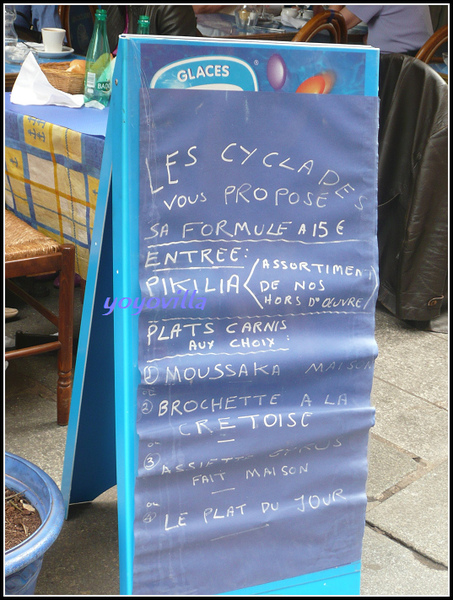 GLACES
LES CYCLADES
VOUS PROPOSE
SA FORMULE A 15 €
ENTREE:
PIKILIA (ASSORTIMENT
DE NOS
HORS D'ŒUVRE)
PLATS CARNIS
AUX CHOIX:
① MOUSSAKA MAISON
ou
② BROCHETTE A LA
CRETOISE
ou
③ ASSIETTE
FAIT MAISON
ou
④ LE PLAT DU JOUR
yoyovilla